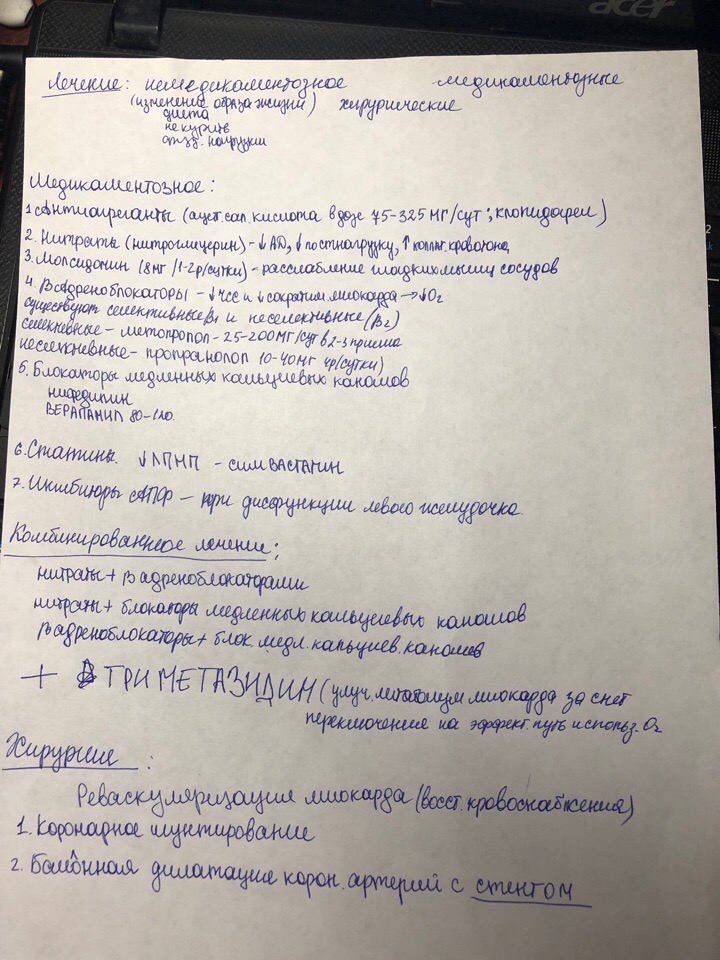 acer
Лечение: немедикаментозное медикаментозные
(изменение образа жизни) хирургические
диета
не курить
отд. нагрузки
Медикаментозное:
1 Антиагреганты (ацет. сал. кислота в дозе 75-325 мг/сут; клопидагрел)
2. Нитраты (нитроглицерин) - ↓ АД, ↓ постнагрузку, ↑ коллат. кровоток,
3. Молсидомин (8 мг /1-2р/сутки) - расслабление гладких мышц сосудов
4. β адреноблокаторы - ↓ чсс и ↓ сократим. миокарда → ↓O₂
существуют селективные β₁ и неселективные (β₂)
селективные - метопролол - 25-200 мг/сут в 2-3 приема
неселективные - пропранолол 10-40 мг 4р/сутки)
5. Блокаторы медленных кальциевых каналов
нифедипин
ВЕРАПАМИЛ 80-120.
6. Статины. ↓ ЛПНП - СИМВАСТАТИН
7. Ингибиторы АПФ - при дисфункции левого желудочка.
Комбинированное лечение;
нитраты + β адреноблокаторами
нитраты + блокаторы медленных кальциевых каналов
β адреноблокаторы + блок. медл. кальциев. каналов
+ ТРИМЕТАЗИДИН (улуч. метаболизм миокарда за счет
переключение на эффект. путь использ. O₂
Хирургия :
Реваскуляризация миокарда (восст. кровоснабжения)
1. Коронарное шунтирование
2. Баллонная дилатация корон. артерий с стентом